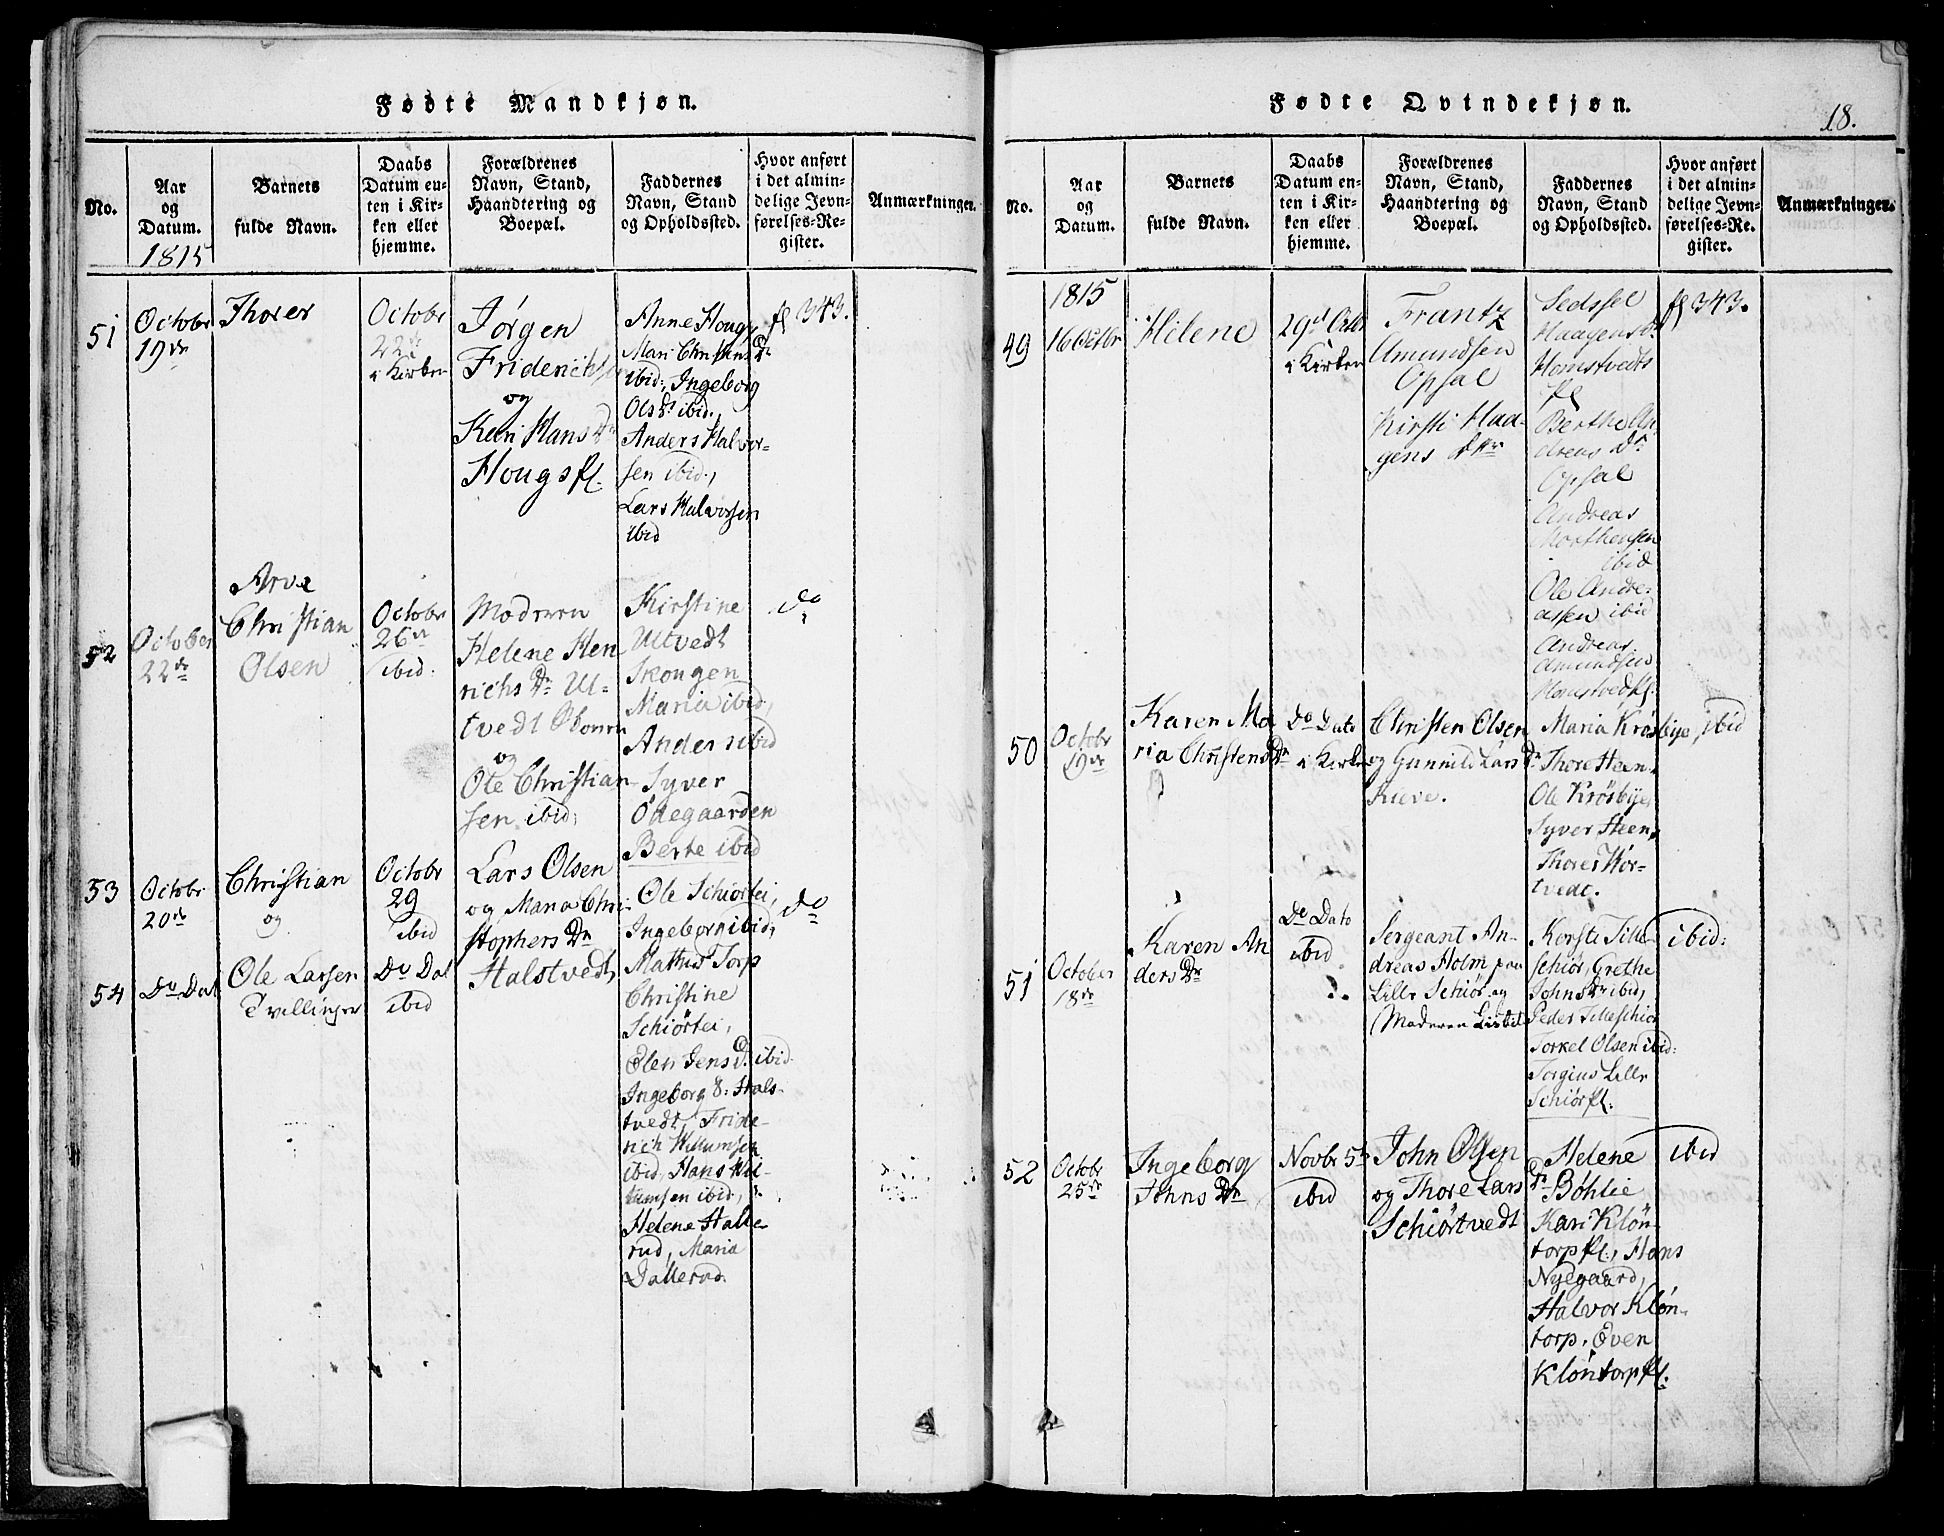 Fødte Mandkjøn.
No.
Aar
og
Datum.
1815
Barnets
fulde Navn.
Daabs
Datum en-
ten i Kir-
ken eller
hjemme.
Forældrenes
Navn, Stand,
Haandtering og
Boepæl.
Faddernes
Navn, Stand
og Opholdssted.
Hvor anført
i det almin-
delige Jevn-
førelses-Re-
gister.
Anmærkninger.
51
Octobr
19de
Thorer
Octobr
22de
i Kirken
Jörgen
Friderichsen
og
Kari Hans Dr
Hougsfl.
Anne Houg
Mari Christens Dr
ibid:, Ingeborg
Ols Dr ibid.,
Anders Halvor-
sen ibid.,
Lars Halvorsen
ibid
fl 343.
52
October
22de
Arve
Christian
Olsen
Octobr
26de
ibid:
Moderen
Helene Hen
richs Dr Ul-
tvedt
og
Ole Christian
sen ibid:
Kirstine
Ultvedt
Skougen
Maria ibid,
Anders ibid
Syver
Ödegaarden
Berte ibid
do
53
Octobr
20de
Christian
og
Octobr
29
ibid
Lars Olsen
og Maria Chri-
stophers Dr
Halstvedt
Ole Schiörtei,
Ingeborg ibid,
Mathis Torp
Christine
Schiörtei,
Olen Jens D. ibid.
Ingeborg O: Hals-
tvedt, Fride-
rich Willumsen
ibid, Hans Wil-
lumsen ibid,
Helene Halle-
rud, Maria
Dallerud.
do
54
Do Dat
Ole Larsen
Tvillinger
Do Dat
ibid
Fødte Qvindekjøn.
18.
No.
Aar
og
Datum.
Barnets
fulde Navn.
Daabs
Datum en-
ten i Kir-
ken eller
hjemme.
Forældrenes
Navn, Stand,
Haandtering og
Boepæl.
Faddernes
Navn, Stand
og Opholdssted.
Hvor anført
i det almin-
delige Jevn-
førelses-Re-
gister.
Anmærkninger.
1815
49
16 Octbr
Hilene
29de Octbr
i Kirken
Frantz
Amundsen
Opsal
Kirsti Haa-
gens Dtr
Sedssel
Haagens Dr
Homstvedts
fl
Berthe An-
dreas Dr
Opsal
Andreas
Morthensen
ibid
Ole Andre-
assen ibid
Andreas
Amundsen
Homstvedfl.
fl 343.
50
Octobr
19de
Karen Ma
ria Christens Dr
Do Dato
i Kirken
Christen Olsen
og Gunnild Lars Dr
Kieve.
Maria Krösbye,
Thore Steen,
Ole Krösbye,
Syver Steen,
Thorer Hör-
tvedt.
ibid
51
October
18de
Karen An
ders Dr
Do Dato
ibid
Sergeant An-
dreas Holm paa
Lille Schiör og
Moderen Lisbet
Korsti Lille
Schiör, Grethe
Johns Dr ibid,
Peder Lilleschiör
Torkel Olsen ibid:
Torgius Lille
Schiörfl.
ibid:
52
Octobr
25de
Ingeborg
Johns Dr
Novbr 5te
ibid
John Olsen
og Thore Lars Dr
Schiörtvedt
Helene
Böhlie
Kari Klön-
torpfl., Hans
Nyegaard,
Halvor Klön-
torp, Even
Klöntorpfl.
ibid